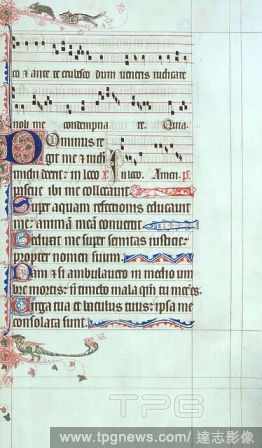 co et ante te erubesco dum veneris iudicare
noli me contempna re. Quia.
Dominus re
git me et nichil
michi deerit: in loco
In loco. Amen. p.
pascue ibi me collocavit.
Super aquam refectionis educavit
me: animā meā convertit.
Deduxit me super semitas iusticie:
propter nomen suum.
Nam et si ambulavero in medio um
bre mortis: nō timebo mala qm̄ tu mecū es.
Virga tua et baculus tuus: ipsa me
consolata sunt.
TPG
www.tpgnews.com / 達志影像